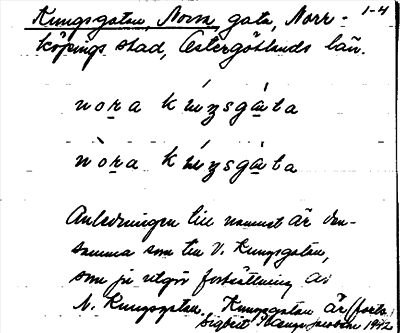 1-4
Kungsgatan, Norra, gata, Norr-
köpings stad, Östergötlands län.
nora kúŋsgàta
nòra kúŋsgàta
Anledningen till namnet är den-
samma som till V. Kungsgatan,
som ju utgör fortsättning av
N. Kungsgatan. Kungsgatan är (forts.)
Sigbrit 1942